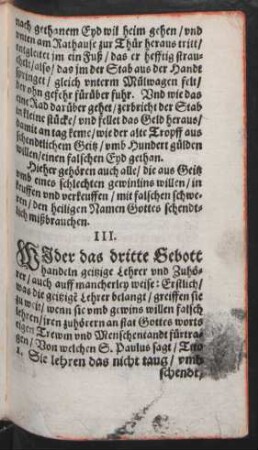 nach gethanem Eyd wil heim gehen / vnd
vnten am Rathause zur Thür heraus tritt /
entgleitet jm ein Fuß / das er hefftig strau-
chelt / also / das jm der Stab aus der Handt
springet / gleich vnterm Mülwagen felt /
der ohn gefehr fürüber fuhr. Vnd wie das
eine Rad darüber gehet / zerbricht der Stab
in kleine stücke / vnd fellet das Geld heraus /
damit an tag keme / wie der alte Tropff aus
schendtlichem Geitz / vmb Hundert gülden
willen / einen falschen Eyd gethan.
Hieher gehören auch alle / die aus Geitz
vmb eines schlechten gewinlins willen / in
keuffen vnd verkeuffen / mit falschen schwe-
ren / den heiligen Namen Gottes schendt-
lich mißbrauchen.
III.
WIder das dritte Gebott
handeln geitzige Lehrer vnd Zuhö-
rer / auch auff mancherley weise: Erstlich /
was die geitzige Lehrer belangt / greiffen sie
zu weit / wenn sie vmb gewins willen falsch
lehren / jren zuhörern an stat Gottes worts
Trewm vnd Menschentandt fürtra-
gen / Von welchen S. Paulus sagt / Tito
1. Sie lehren das nicht taug / vmb
schendt.